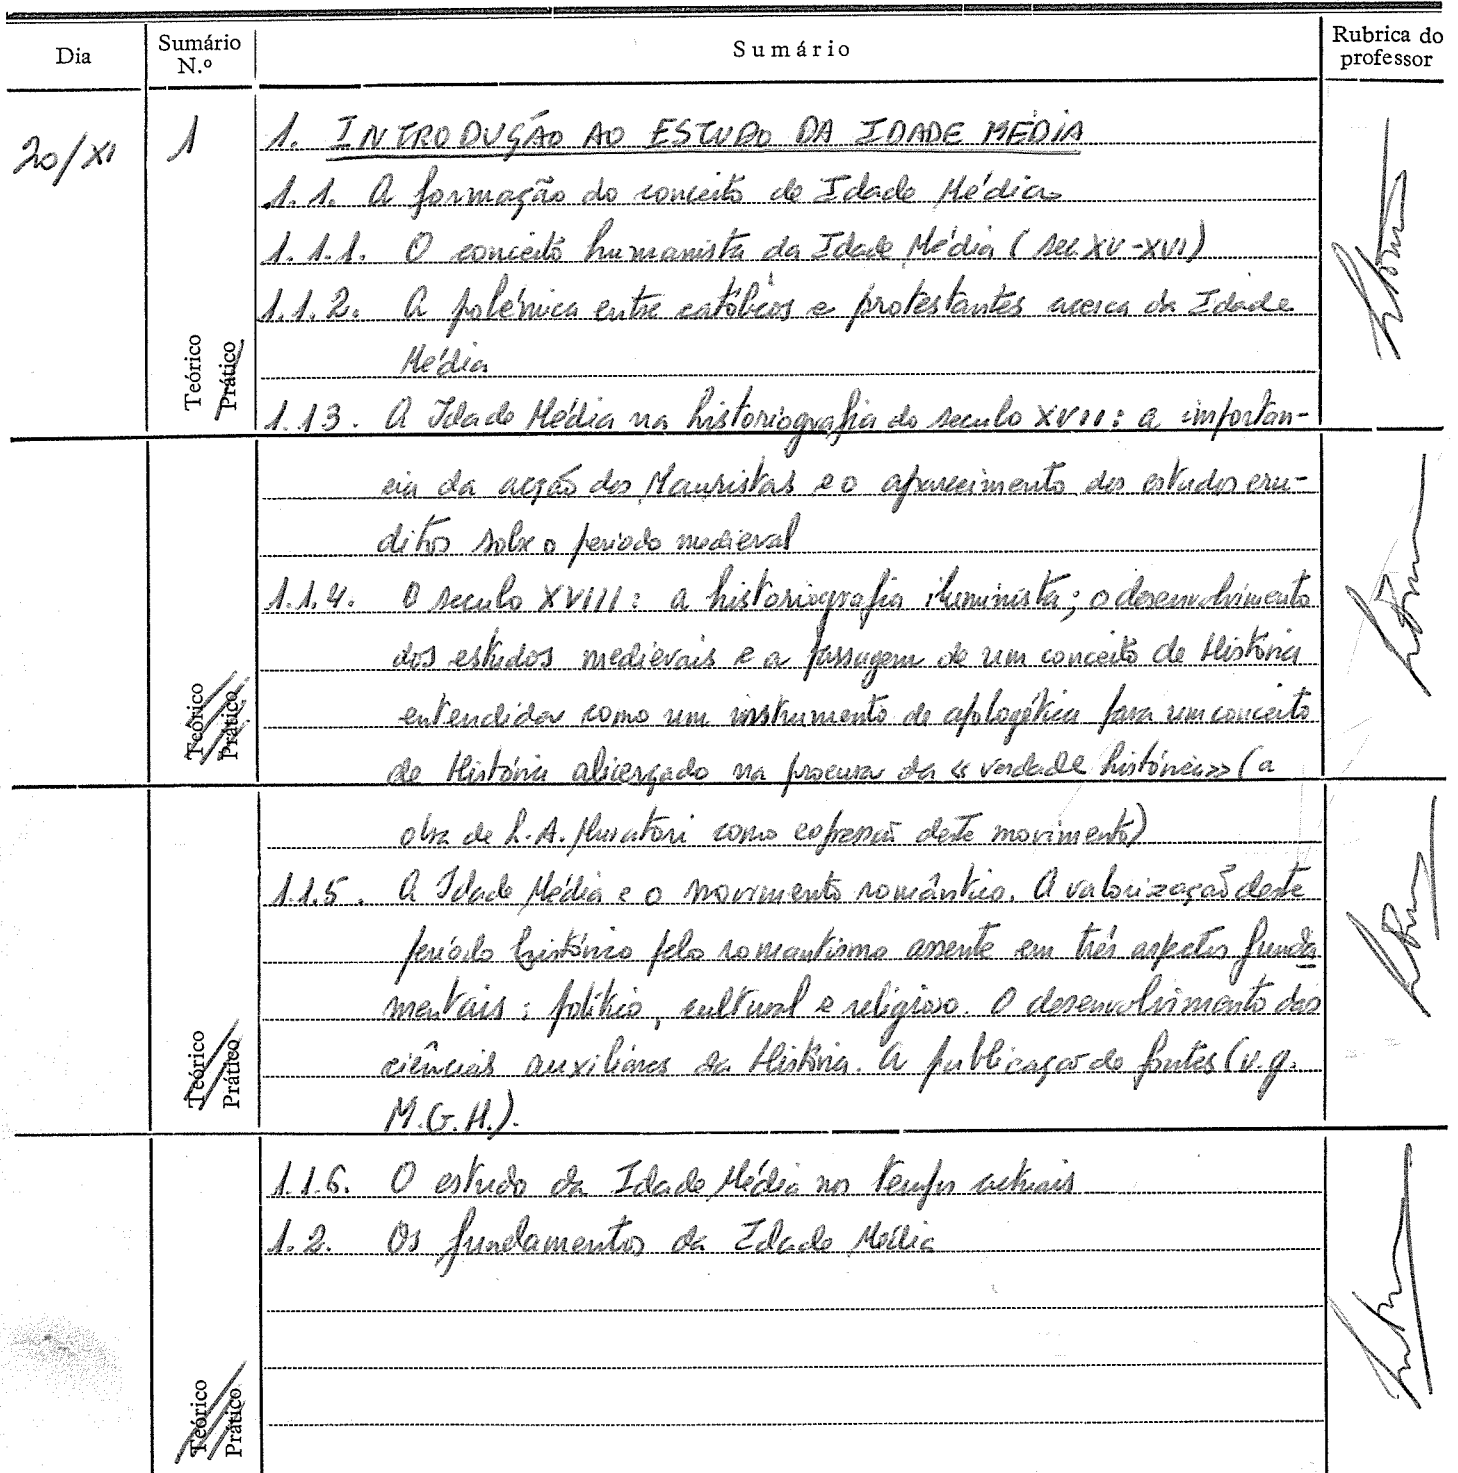 Dia
Sumário N.º
Sumário
Rubrica do professor
20/XI
1
1. INTRODUÇÃO AO ESTUDO DA IDADE MÉDIA
1.1. A formação do conceito de Idade Média
1.1.1. O conceito humanista da Idade Média (sec. XV-XVI)
1.1.2. A polémica entre católicos e protestantes acerca da Idade
Média
Teórico
Prático
1.1.3. A Idade Média na historiografia do seculo XVII: a importan-
cia da acção dos Mauristas e o aparecimento dos estudos eru-
ditos sobre o periodo medieval
1.1.4. O seculo XVIII: a historiografia iluminista; o desenvolvimento
dos estudos medievais e a passagem de um conceito de História
entendida como um instrumento de apologética para um conceito
de História alicerçado na procura da «verdade histórica» (a
Teórico
Prático
obra de L.A. Muratori como expressão deste movimento)
1.1.5. A Idade Média e o movimento romântico. A valorização deste
período histórico pelo romantismo assente em três aspectos funda
mentais: politico, cultural e religioso. O desenvolvimento das
ciências auxiliares da História. A publicação de fontes (v.g.
M.G.H.).
Teórico
Prático
1.1.6. O estudo da Idade Média nos tempos actuais
1.2. Os fundamentos da Idade Média
Teórico
Prático